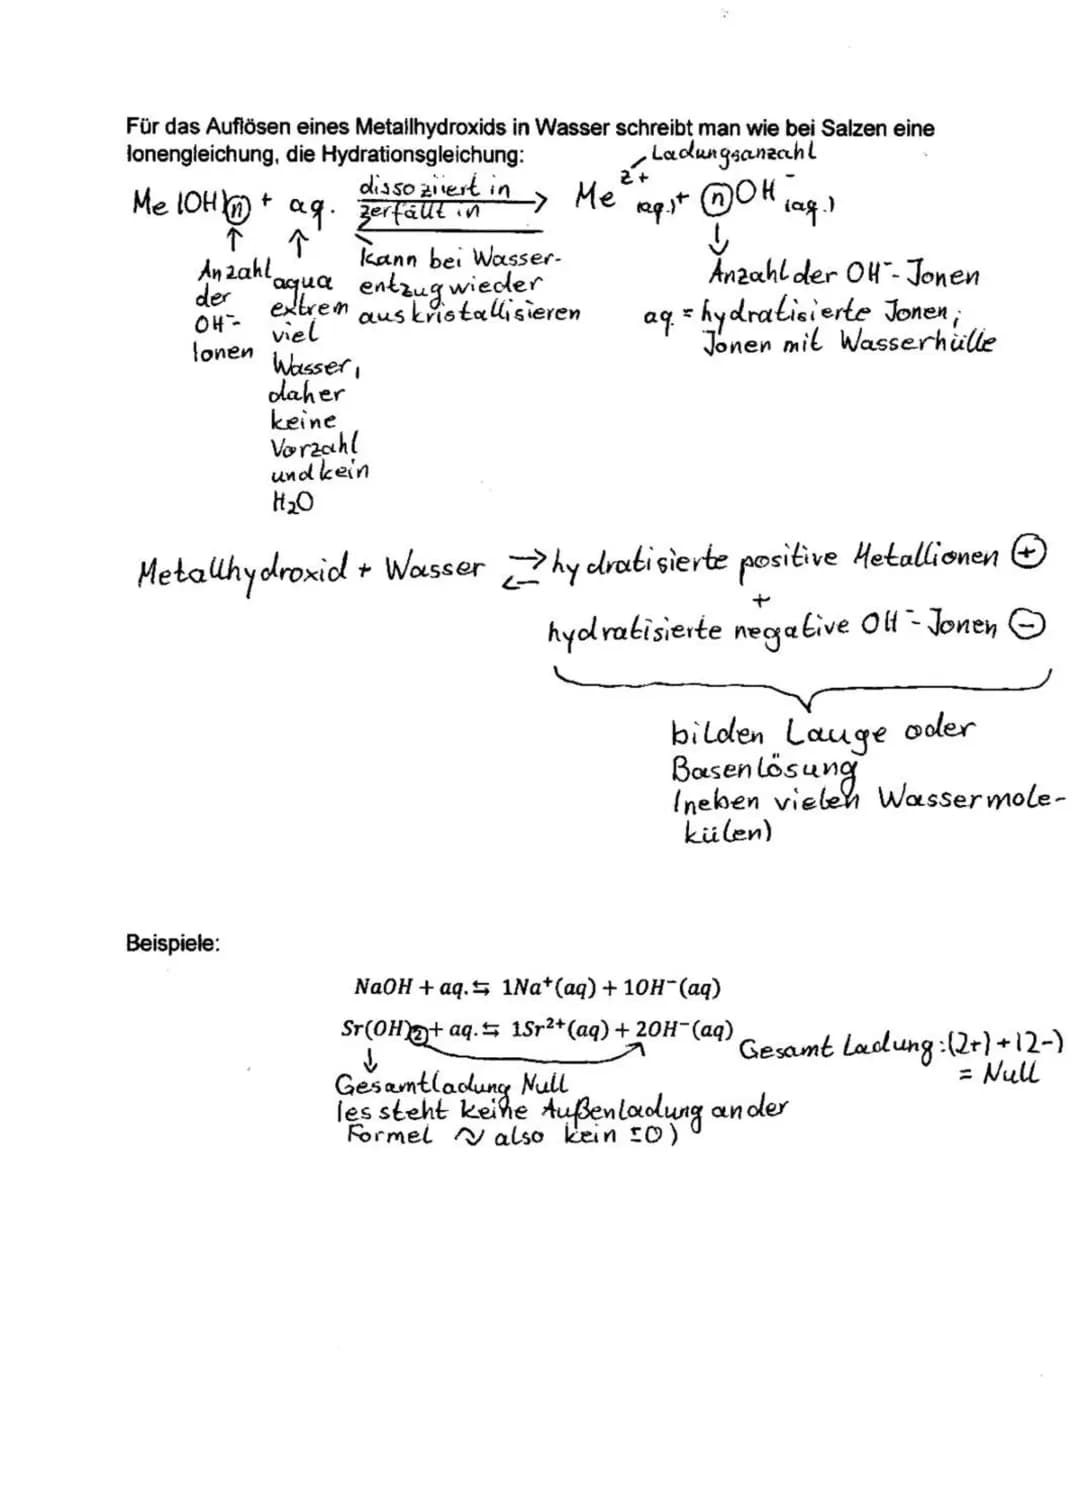 Für das Auflösen eines Metallhydroxids in Wasser schreibt man wie bei Salzen eine
Ionengleichung, die Hydrationsgleichung:
Ladungsanzahl
Me (OH)n + aq. dissoziiert in / zerfällt in → Me z+ (aq.) + n OH - (aq.)
Anzahl
der
OH--
Ionen
aqua
extrem
viel
Wasser,
daher
keine
Vorzahl
und kein
H₂O
kann bei Wasser-
entzug wieder
auskristallisieren
Anzahl der OH⁻- Jonen
aq. = hydratisierte Jonen;
Jonen mit Wasserhülle
Metallhydroxid + Wasser ⇄ hydratisierte positive Metallionen ⊕
+
hydratisierte negative OH⁻- Jonen ⊖
bilden Lauge oder
Basenlösung
(neben vielen Wassermole-
külen)
Beispiele:
NaOH + aq. ⇆ 1Na⁺(aq) + 1OH⁻(aq)
Sr(OH)₂ + aq. ⇆ 1Sr²⁺(aq) + 2OH⁻(aq)
Gesamt Ladung: (2+) + (2-)
= Null
Gesamtladung Null
(es steht keine Außenladung an der
Formel ~ also kein ±0)